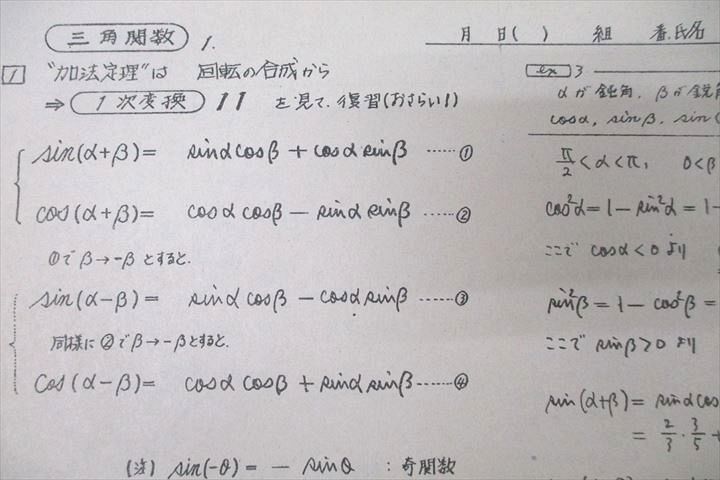 三角関数 1.
月 日( ) 組 番.氏名
1 "加法定理"は 回転の合成から
⇒ 1次変換 11 を見て、復習(おさらい!)
sin(α+β)= sinαcosβ + cosα sinβ ……①
cos(α+β)= cosα cosβ − sinα sinβ ……②
①で β→-β とすると.
sin(α−β)= sinα cosβ − cosα sinβ ……③
同様に ②で β→-β とすると.
cos(α−β)= cosα cosβ + sinα sinβ ……④
(注) sin(-θ) = − sinθ : 奇関数
ex 3
αが鈍角、βが鋭角
cosα, sinβ, sin(
π/2 < α < π, 0<β
cos²α = 1 − sin²α = 1−
ここで cosα<0 より
sin²β = 1 − cos²β =
ここで sinβ>0 より
sin(α+β) = sinα cos
= 2/3 · 3/5 +